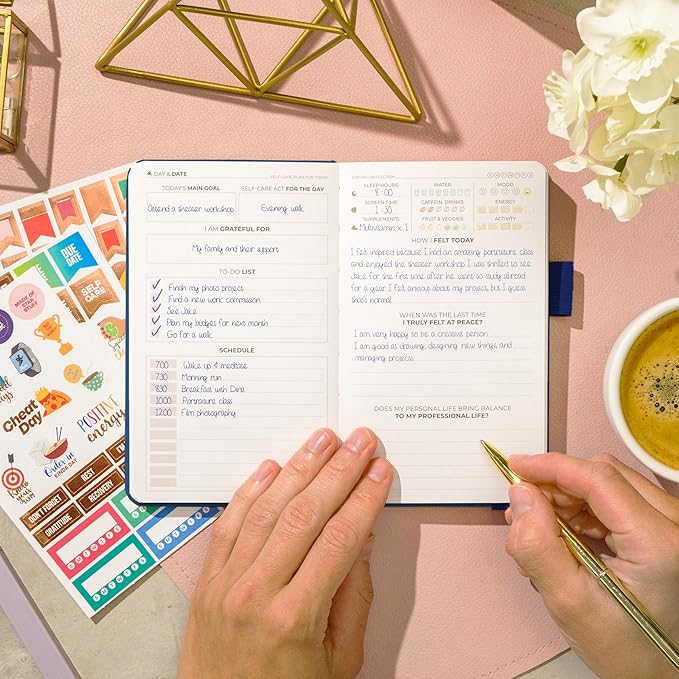 DAY & DATE
SELF-CARE PLAN FOR TODAY
TODAY'S MAIN GOAL
SELF-CARE ACT FOR THE DAY
Attend a theater workshop
Evening walk
I AM GRATEFUL FOR
My family and their support
TO-DO LIST
Finish my photo project
Find a new work commission
See Jake
Plan my budges for next month
Go for a walk
SCHEDULE
7:00 Wake up & medicate
7:30 Morning run
8:30 Breakfast with Dina
10:00 Portraiture class
12:00 Film photography
EVENING REFLECTION
SLEEP HOURS
8 : 00
WATER
MOOD
SCREEN TIME
1 : 30
CAFFEIN. DRINKS
ENERGY
SUPPLEMENTS
Multivitamin x 1
FRUIT & VEGGIES
ACTIVITY
HOW I FELT TODAY
I felt inspired because I had an amazing portraiture class
and enjoyed the theater workshop. I was thrilled to see
Jake for the first time after he went to study abroad
for a year. I felt anxious about my project, but I guess
that's normal.
WHEN WAS THE LAST TIME
I TRULY FELT AT PEACE?
I am very happy to be a creative person.
I am good at drawing, designing new things, and
managing projects
DOES MY PERSONAL LIFE BRING BALANCE
TO MY PROFESSIONAL LIFE?
DUE
DATE
SELF
CARE
MADE OF
STAR
STUFF
Cheat
Day
POSITIVE
energy
Order in
KINDA DAY
DON'T FORGET
REST
RECOVERY
DON'T FORGET
GRATITUDE
S M T W T F S
S M T W T F S